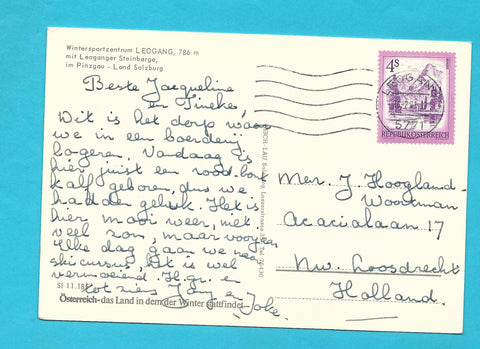 Wintersportzentrum LEOGANG, 786 m
mit Leoganger Steinberge,
im Pinzgau - Land Salzburg
Beste Jacqueline
en Tineke,
Dit is het dorp waar
we in een boerderij
logeren. Vandaag is
hier juist een rood-bont
kalf geboren, dus we
hadden geluk. Het is
hier mooi weer, niet
veel zon, maar
Elke dag gaan we naar
skicursus. Dit is wel
vermoeiend. H. gr. en
tot ziens Jony en
Joke.
SI 11.18
Österreich - das Land in dem der Winter stattfindet
4S
REPUBLIK ÖSTERREICH
LEOGANG
5771
Mej. J Hoogland-
Workman
Acacialaan 17
Nw. Loosdrecht
Holland.